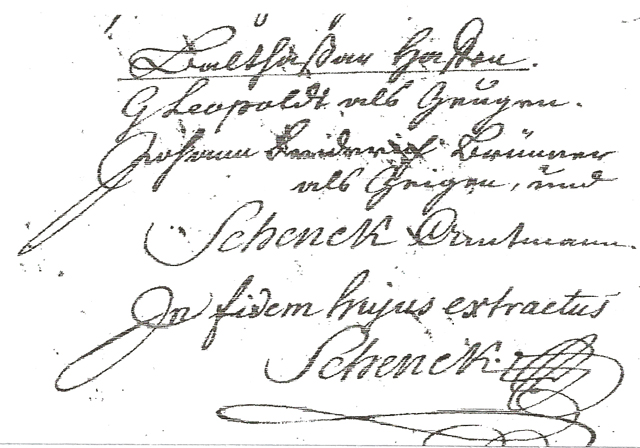 Balthaßar Hasten.
G Leopoldt als Zeugen.
Johann Friderich Brünner
als Zeigen, und
Schenck Amtmann.
In fidem hujus extractus
Schenck.